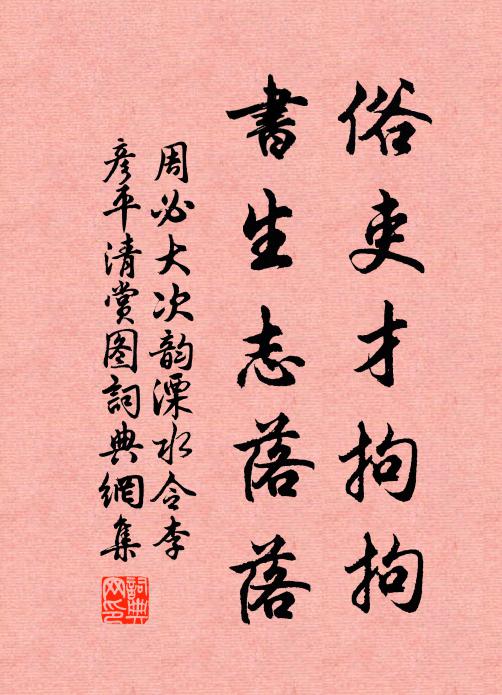 俗吏才拘拘
書生志落落
周必大次韵溧水令李
彦平清赏图詞典網集
詞典網印